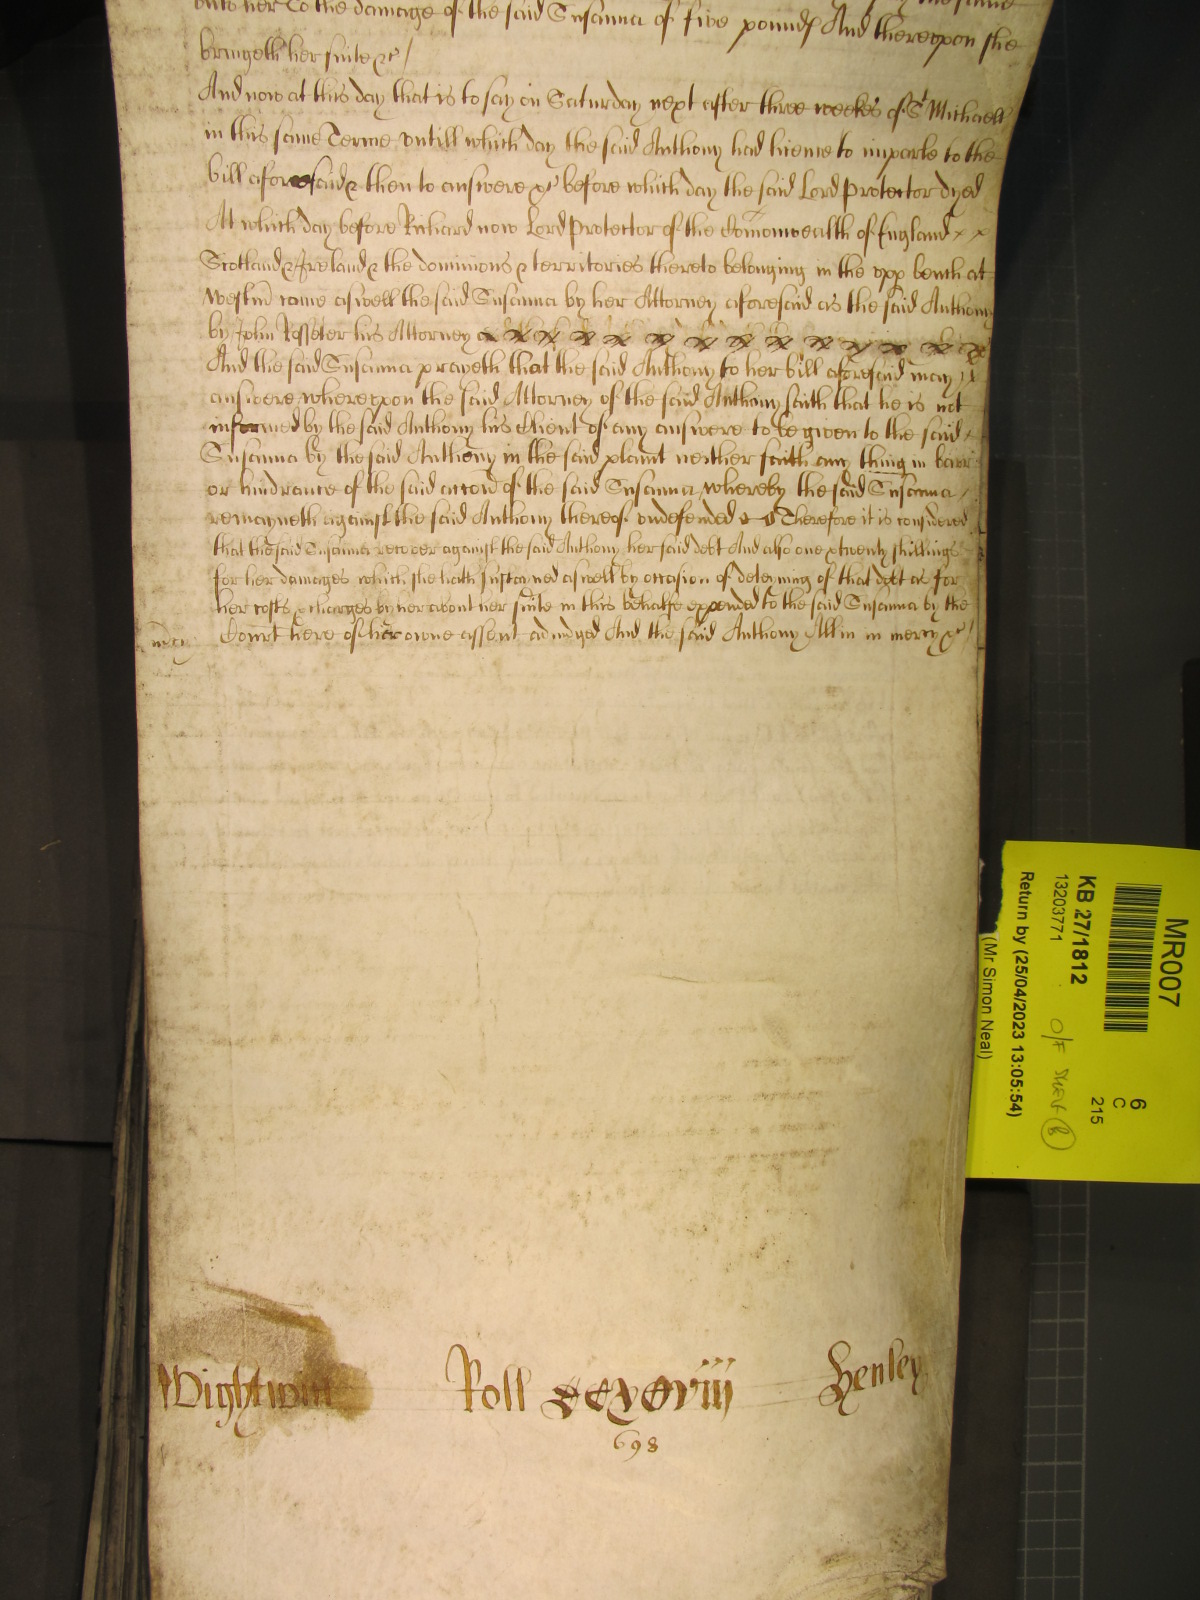 unto her To the damage of the said Susanna of five pounds And thereupon she
bringeth her suite &c /
And now at this day that is to say on Saturday next after three weekes of St Michaell
in this same Terme untill which day the said Anthony had licence to imparle to the
bill aforesaid & then to answere &c before which day the said Lord Protector dyed
At which day before Richard now Lord Protector of the Comonwealth of England x x
Scotland & Ireland & the dominions & territories thereto belonging in the upp bench at
Westm come aswell the said Susanna by her Attorney aforesaid as the said Anthony
by John Rosseter his Attorney
And the said Susanna prayeth that the said Anthony to her bill aforesaid may
answere whereupon the said Attorney of the said Anthony saith that he is not
informed by the said Anthony his Client of any answere to be given to the said
Susanna by the said Anthony in the said plaint neither saith any thing in barr
or hindrance of the said accon of the said Susanna whereby the said Susanna /
remayneth against the said Anthony thereof undefended Therefore it is considered
that the said Susanna recover against the said Anthony her said debt And also one & twenty shillings
for her damages which she hath sustayned aswell by occasion of deteyning of that debt as for
her costs & charges by her about her suite in this behalfe expended to the said Susanna by the
Court here of her owne assent adiudged And the said Anthony Allin in mercy &c /
mcy
Wightwick
Roll DCXCviij
Henley
698
MR007
KB 27/1812
13203771
Return by (25/04/2023 13:05:54)
(Mr Simon Neal)
6
C
215
O/F
B